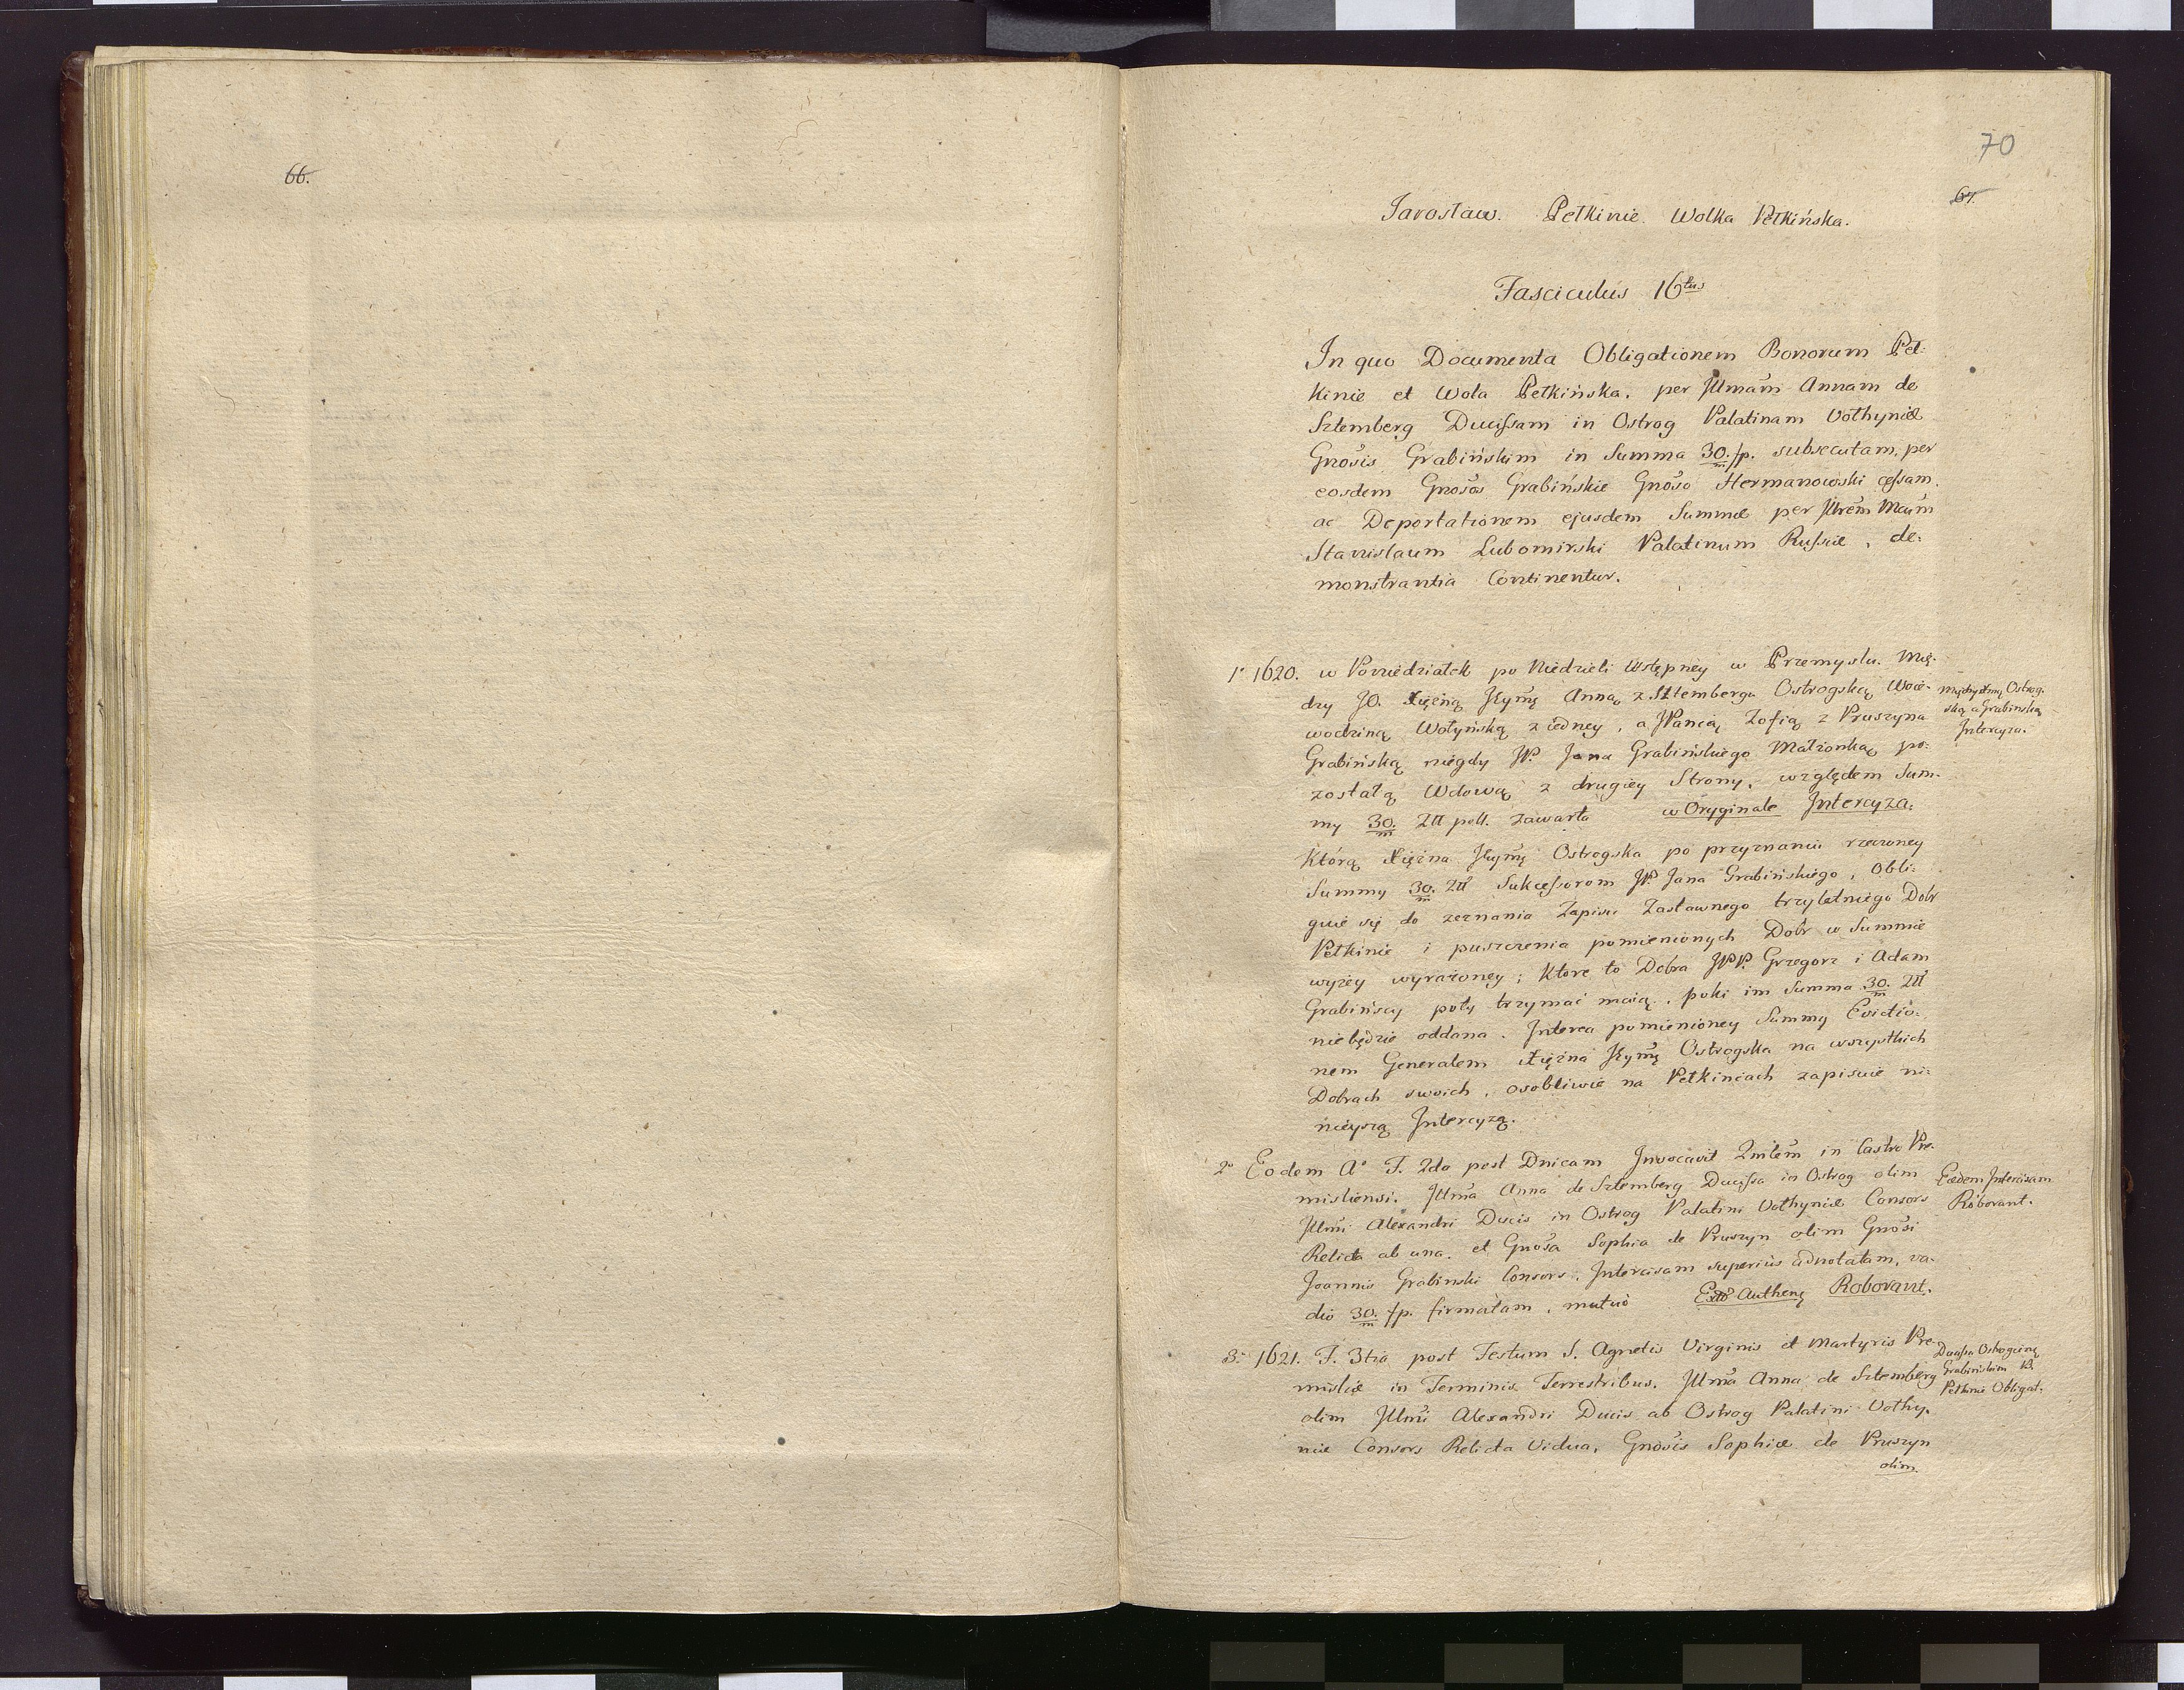 66.
70
67.
Jarosław. Pełkinie. Wolka Pełkińska.
Fasciculus 16tus
In quo Documenta Obligationem Bonorum Peł-
kinie et Wola Pełkińska, per Illmam Annam de
Sztemberg Ducissam in Ostrog Palatinam Volhyniæ
Gnosis Grabińskim in Summa 30/m fp. subsecutam, per
eosdem Gnosos Grabińskie Gnoso Hermanowski cessam,
ac Deportationem ejusdem Summæ per Illrem Maum
Stanislaum Lubomirski Palatinum Russiæ, de-
monstrantia Continentur.
1° 1620. w Poniedziałek po Niedzieli Wstępney w Przemyslu. Mię-
dzy JO. Xiężną Jeymę Anną z Sztemberga Ostrogską Woie-
wodziną Wołyńską z iedney, a JPanią Zofią z Pruszyna
Grabińską niegdy JP. Jana Grabińskiego Małżonką po-
zostałą Wdową z drugiey Strony, względem Sum-
my 30/m Złł poll. zawarta w Oryginale Intercyza:
Którą Xiężna Jeymę Ostrogska po przyznaniu rzeczoney
Summy 30/m Złł Sukcessorom JP. Jana Grabińskiego, obli-
guie się do zeznania Zapisu Zastawnego trzyletniego Dobr
Pełkinie i puszczenia pomienionych Dobr w Summie
wyżey wyrażoney; Ktore to Dobra JPP. Grzegorz i Adam
Grabińscy poty trzymać maią, poki im Summa 30/m Złł
niebędzie oddana. Interea pomienioney Summy Evictio-
nem Generalem Xiężna Jeymę Ostrogska na wszystkich
Dobrach swoich, osobliwie na Pełkiniach zapisuie ni-
nieyszą Intercyzą.
Między Xżną Ostrog-
ską a Grabinską
Intercyza.
2° Eodem A° F. 2da post Dnicam Invocavit Qmlem in Castro Pre-
misliensi. Illma Anna de Sztemberg Ducissa in Ostrog olim
Illmi Alexandri Ducis in Ostrog Palatini Volhyniæ Consors
Relicta ab una, et Gnosa Sophia de Pruszyn olim Gnosi
Joannis Grabinski Consors, Intercisam superius adnotatam, va-
dio 30/m fp. firmatam, mutuo Extto Authen Roborant.
Eædem Intercisam
Roborant.
3° 1621. F. 3tia post Festum S. Agnetis Virginis et Martyris Pre-
misliæ in Terminis Terrestribus. Illma Anna de Sztemberg
olim Illmi Alexandri Ducis ab Ostrog Palatini Volhy-
niæ Consors Relicta Vidua, Gnosis Sophiæ de Pruszyn
olim
Ducissa Ostrogiana
Grabińskim B.
Pełkinie Obligat.